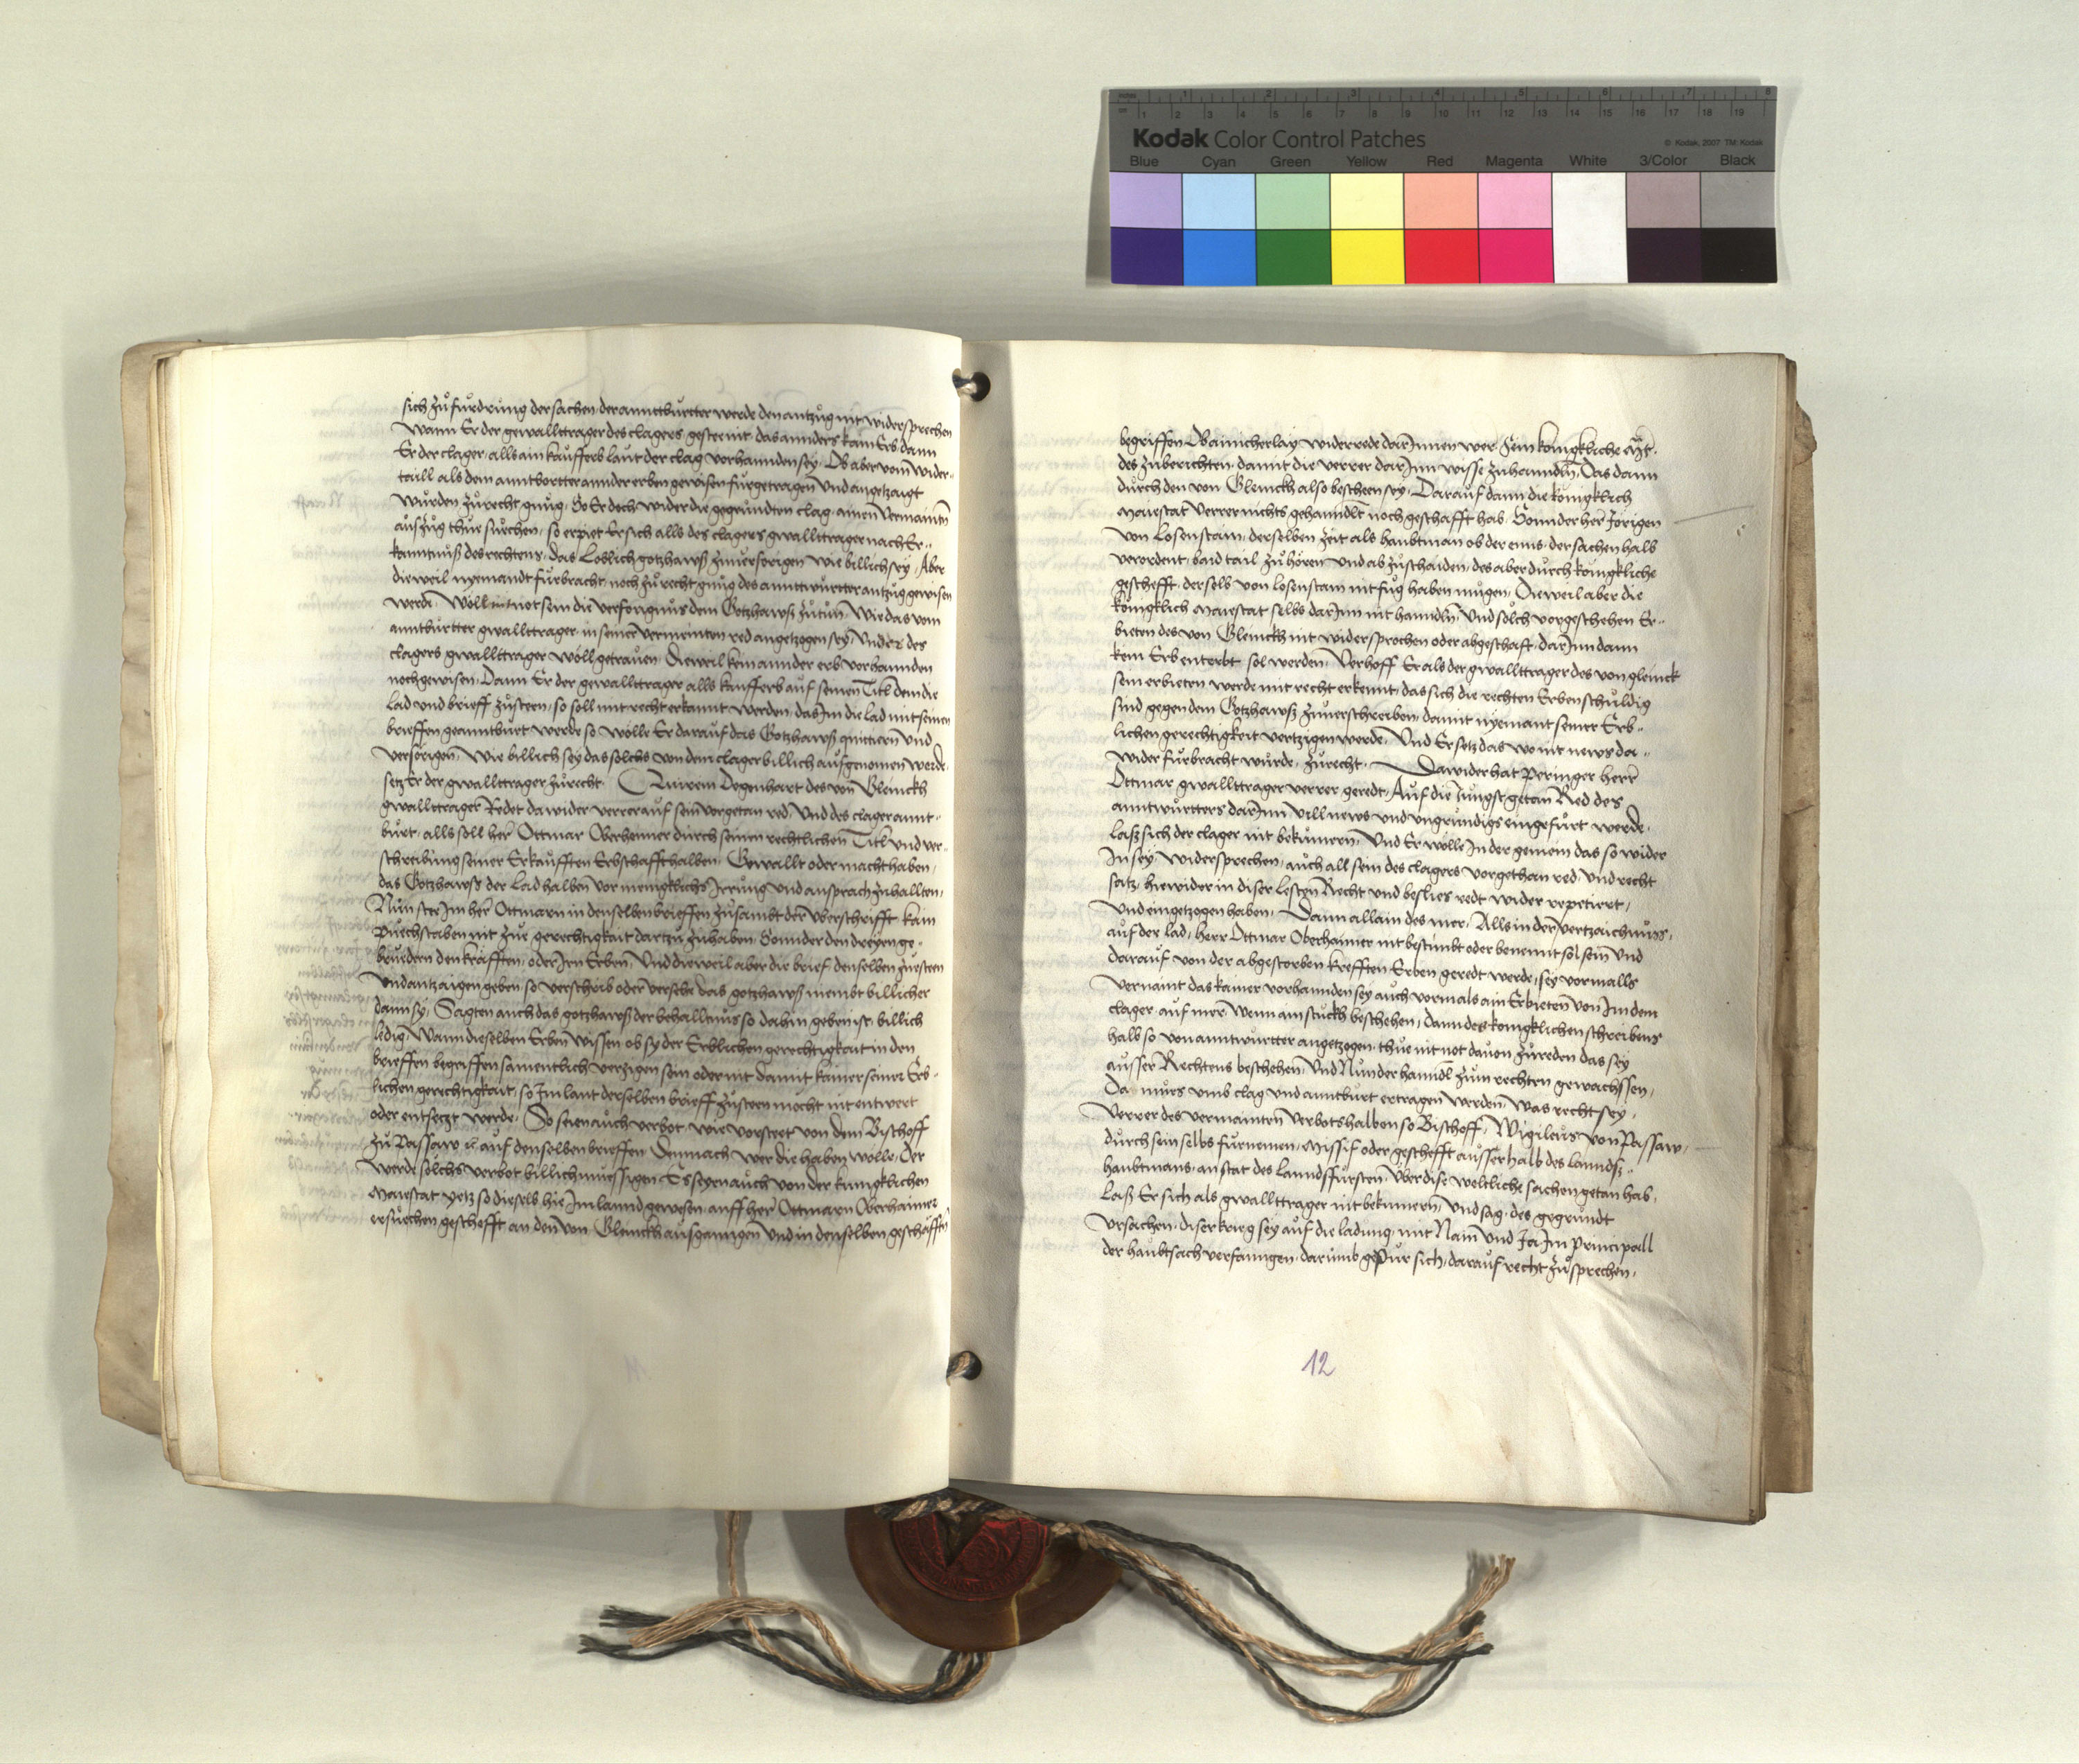 Kodak Color Control Patches
© Kodak, 2007 TM: Kodak
Blue Cyan Green Yellow Red Magenta White 3/Color Black
sich zů furdrung der sachen, der anntburtter werde den antzůg nit widersprechen
Wann Er der gewallttrager des clagers gestee nit, das annders kain Erb, dann
Er der clager, alls ain kaufferb laut der clag vorhannden sey, Ob aber vom wider-
taill als dem anntbortter annder erben gewisen furgetragen und angetzaigt
wurden zůrecht gnůg, So Er doch wider die gegrundten clag, ainen vermaintn
auszůg thue sůechen, so erpiet Er sich alls des clagers gwallttrager nach Er-
kanntnuß des rechtens, das Loblich gotzhawß zuuersorigen wie billich sey, Aber
dieweil nyemandt furbracht, noch zů recht gnůg des anntwurtter antzug gewisen
werde, Woll nit not sein die versorignus dem Gotzhawß zutun, Wie das vom
anntburtter gwallttrager, in seiner vermeinten red angetzogen sey, Und er des
clagers gwallttrager woll getrauen, Dieweil kein annder erb vorhannden
noch gewisen, Dann Er der gewallttrager alls kaufferb auf seinen Titl dem die
Lad und brieff zusteen, so soll mit recht erkannt werden, das Im die lad mit seinen
brieffen geanntburt werde so wolle Er darauf das Gotzhawß quittiern und
versorigen, Wie billich sey das solchs von dem clager billich aufgenomen werde
setz Er der gwallttrager zůrecht, Quirein Degenhart des von Gleinckh
gwallttrager Redet dawider verrer auf sein vorgetan red, Und des clager annt-
burt, alls soll her Ottmar Oberheimer durch seinen rechtlichen Titl und ver-
schreibung seiner Erkaufften Erbschafft halben, Gewallt oder macht haben,
das Gotzhawß der Lad halben vor menigklichs Irrung und ansprach zuhallten,
Nun stee Im her Ottmarn in denselben brieffen zusambt der uberschrifft kain
půechstaben nit zue, gerechtigkait dartzu zuhaben, Sonnder den dreyen ge-
bruedern den krafften, oder Irn Erben, Und dieweil aber die brief denselben zusteen
und antzaigen geben so verschrib oder versehe das gotzhawß niembt billicher
dann sy, Sagten auch das gotzhawß der behalltnus so dahin geben ist, billich
ledig, Wann dieselben Erben wissen ob sy der Erblichen gerechtigkait in den
brieffen begriffen samentlich verzigen sein oder nit damit kainer seiner Erb-
lichen gerechtigkait, so Im laut derselben brieff zusteen möcht nit entwert
oder entsetzt werde, So seien auch verbot, wie vorsteet von dem Bischoff
zů Passaw ec auf denselben brieffen, Demnach wer die haben wolle, Der
werde solchs verbot billich muessigen, Es seyen auch von der kunigklichen
Maiestat yetz so dieselb hie Im lannd gewesen, auff her Ottmarn Oberhaimer
ersuechen geschefft an den von Gleinckh ausganngen Und in denselben geschäfftn
begriffen Ob ainicherlay widerrede darInnen wer, Sein konigkliche M<sup>t</sup>.
des zuberichten, damit die verrer darInn wisse zuhanndln, Das dann
durch den von Gleinckh also bescheen sey, Darauf dann die königklich
Maiestat verrer nichts gehanndlt noch geschafft hab, Sonnder her Jorigen
von Losenstain, derselben Zeit als haubtman ob der enns, der sachen halb
verordent, baid tail zu hören und ab zuschaiden, des aber durch konigkliche
geschefft, derselb von losenstain nit fug haben mugen, Dieweil aber die
königklich Maiestat selbs darInn nit hanndln, Und solch vorgeschehen Er-
bieten des von Gleinckh nit widersprochen oder abgeschafft, darInn dann
kein Erb enterbt sol werden, Verhoff Er als der gwallttrager des von gleinck
sein erbieten werde mit recht erkennt, das sich die rechten Erben schuldig
sind gegen dem Gotzhawß zuuerschreiben, damit nyemant seiner Erb-
lichen gerechtigkeit vertzigen werde, Und Er setz das wo nit news da-
wider furbracht wurde, zůrecht, Dawider hat Peringer herr
Ottmar gwallttrager verrer geredt, Auf die jungst getan Red des
anntwurtters darInn vill news und ungrundigs eingefurt werde,
Laß sich der clager nit bekumern, Und Er wolle In der gemein das so wider
In sey, widersprechen, auch all sein des clagers vorgethan red, Und recht
satz, hiewider in diser lesten Recht und beslies redt wider repetirt,
und eingetzogen haben, Dann allain des mer, Alls in der vertzaichnuss,
auf der lad, herr Ottmar Oberhaimer nit bestimbt oder benennt sol sein Und
darauf von der abgestorben kreftten Erben geredt werde, sey vormalls
vernaint das kainer vorhannden sey auch vormals ain Erbieten von Im dem
clager auf mer, Wenn am stuckh beschehen, Dann des konigklichen schreibens
halb so von anntwurtter angetzogen, thue nit not dauon zureden das sey
ausser Rechtens beschehen, Und Nun der hanndl zum rechten gewachssen,
Da mues umb clag und anntburt ertragen werden, Was recht sey,
Verrer des vermainten verbots halben so Bischoff, Wigileus von Passaw,
durch sein selbs furnemen, Missif oder geschefft ausserhalb des lannds-
haubtmans, an stat des Lanndsfursten, Uber dise weltliche sachen getan hab,
Laß Er sich als gwallttrager nit bekumern, Und sag, des gegrundt
ursachen, diser krieg sey auf die ladung, mit Nain und Ja Im Principall
der haubtsach verfanngen, darumb gepur sich, darauf recht zusprechen,
12